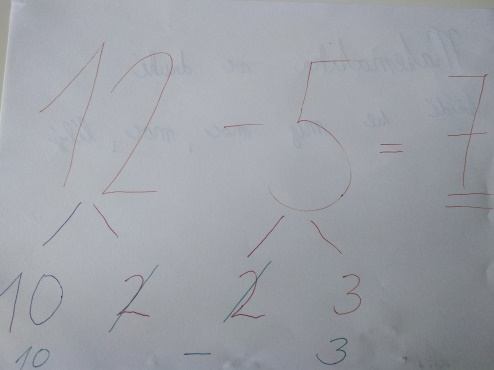 12 - 5 = 7
10 2 2 3
10 - 3